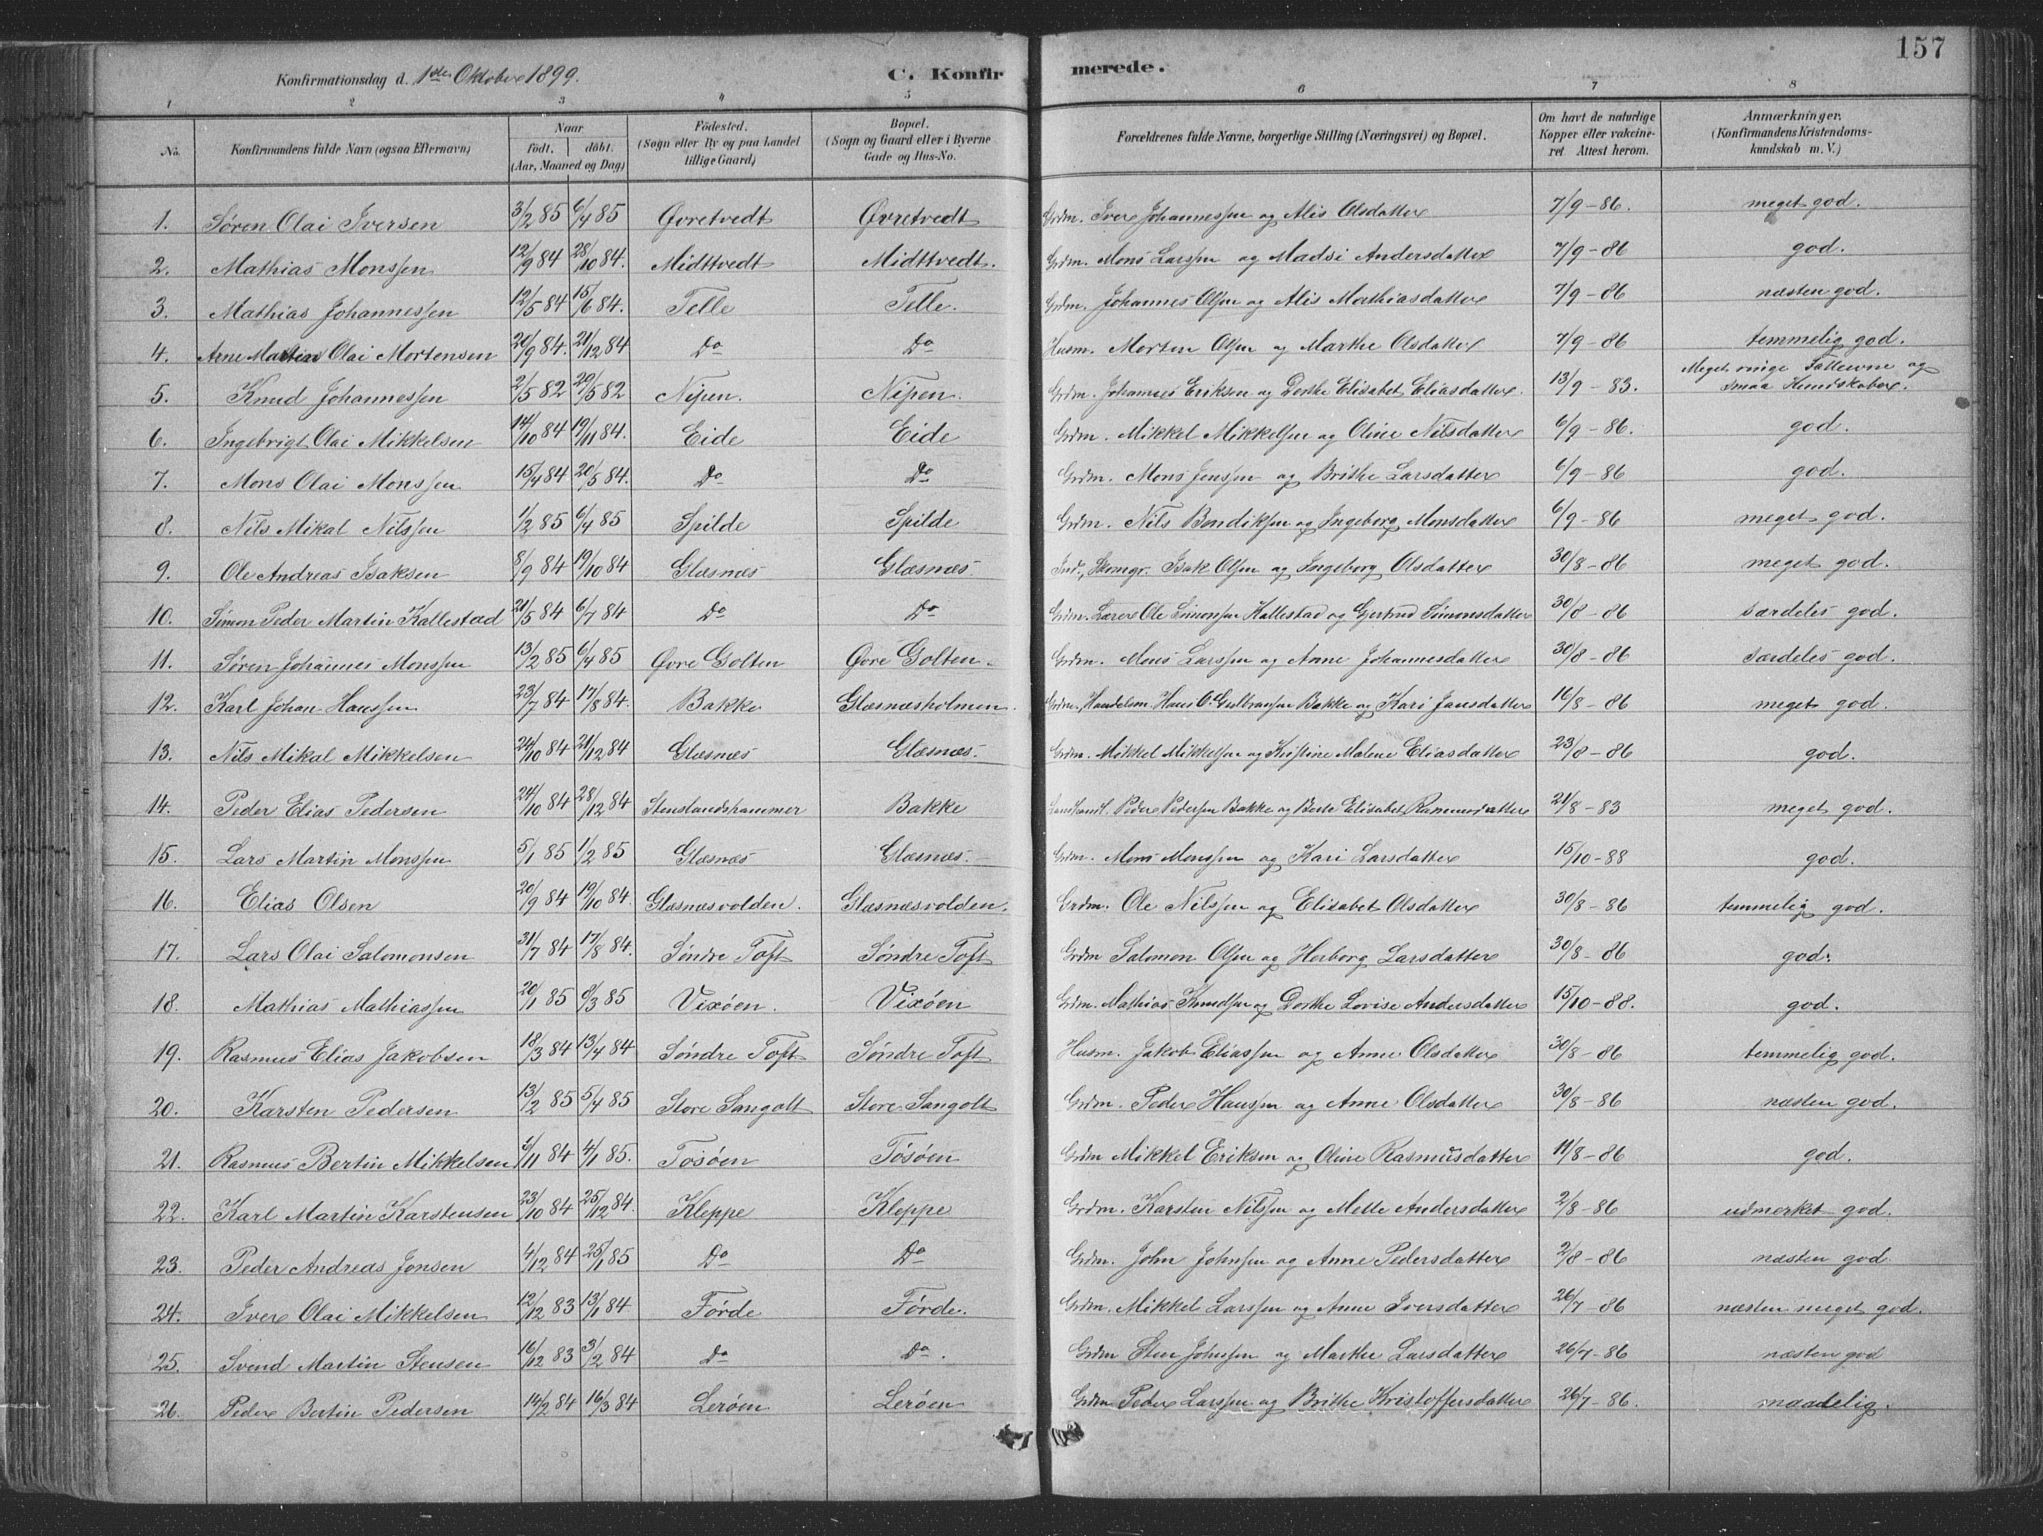 157
Konfirmationsdag d. 1ste Oktober 1899.
C. Konfirmerede.
1 2 3 4 5 6 7 8
No. | Konfirmandens fulde Navn (ogsaa Efternavn) | Naar født. døbt. (Aar, Maaned og Dag) | Fødested. (Sogn eller By og paa Landet tillige Gaard) | Bopæl. (Sogn og Gaard eller i Byerne Gade og Hus-No. | Forældrenes fulde Navne, borgerlige Stilling (Næringsvei) og Bopæl. | Om havt de naturlige Kopper eller vakcineret. Attest herom. | Anmærkninger, (Konfirmandens Kristendomskundskab m. V.)
1. Søren Olai Iversen 3/2 85 6/4 85 Øvretvedt Øvretvedt Grdm. Iver Johannessen og Alis Olsdatter 7/9-86. meget god.
2. Mathias Monssen 12/9 84 28/10 84. Midttvedt Midttvedt. Grdm. Mons Larssen og Madsi Andersdatter 7/9-86 god.
3. Mathias Johannessen 12/5 84 15/6 84. Telle Telle. Grdm. Johannes Olsen og Alis Mathiasdatter 7/9-86 næsten god.
4. Arne Martin Olai Mortensen 20/9 84. 21/12 84 Do Do Husm. Morten Olsen og Marthe Olsdatter 7/9-86 temmelig god.
5. Knud Johannessen 2/5 82 20/5 82 Nipen. Nipen. Grdm. Johannes Eriksen og Dorthe Elisabet Eliasdatter. 13/9-83. Meget ringe Fatteevne og smaa Kundskaber.
6. Ingebrigt Olai Mikkelsen 14/10 84 19/11 84. Eide Eide Grdm. Mikkel Mikkelsen og Oline Nilsdatter 6/9-86. god.
7. Mons Olai Monssen 15/4 84 20/5 84. Do Do Grdm. Mons Jenssen og Brithe Larsdatter 6/9-86 god.
8. Nils Mikal Nilssen 1/2 85 6/4 85 Spilde Spilde Grdm. Nils Bendiksen og Ingeborg Monsdatter 6/9-86 meget god.
9. Ole Andreas Isaksen 8/9 84 19/10 84 Glæsnæs Glæsnæs. Ind., Skomgr. Isak Olsen og Ingeborg Olsdatter 30/8-86 meget god.
10. Simon Peder Martin Kallestad 21/5 84 6/7 84 Do Do Grdm. Lærer Ole Simonsen Kallestad og Gertrud Simonsdatter 30/8-86 særdeles god.
11. Søren Johannes Monssen 13/2 85 6/4 85 Øvre Golten Øvre Golten. Grdm. Mons Larssen og Anne Johannesdatter 30/8-86 særdeles god.
12. Karl Johan Hanssen 23/7 84 17/8 84. Bakke Glæsnæsholmen. Grdm, Handelsm. Hans O. Gulbransen Bakke og Kari Jansdatter 16/8-86 meget god.
13. Nils Mikal Mikkelsen 24/10 84 21/12 84 Glæsnæs Glæsnæs. Grdm. Mikkel Mikkelsen og Kristine Malene Eliasdatter 23/8-86 god.
14. Peder Elias Pedersen 24/10 84 28/12 84 Stenslandshammer Bakke Peder Pedersen Bakke og Berte Elisabet Rasmusdatter 21/8-83 meget god.
15. Lars Martin Monssen 5/1 85 1/2 85 Glæsnæs Glæsnæs. Grdm. Mons Monssen og Kari Larsdatter 15/10-88 god.
16. Elias Olsen 20/9 84 19/10 84. Glæsnæsvolden. Glæsnæsvolden. Grdm. Ole Nilssen og Elisabet Olsdatter 30/8-86 temmelig god.
17. Lars Olai Salomonsen 31/7 84 17/8 84. Søndre Toft Søndre Toft Grdm Salomon Olsen og Herborg Larsdatter 30/8-86 god.
18. Mathias Mathiassen 20/1 85 8/3 85 Vixøen. Vixøen Grdm. Mathias Knudsen og Dorthe Lovise Andersdatter 15/10-88. god.
19. Rasmus Elias Jakobsen 18/3 84 13/4 84 Søndre Toft Søndre Toft Husm. Jakob Eliassen og Anne Olsdatter 30/8-86 temmelig god.
20. Karsten Pedersen 13/2 85 5/4 85 Store Sangolt Store Sangolt Grdm. Peder Hanssen og Anne Olsdatter 30/8-86 næsten god.
21. Rasmus Bertin Mikkelsen 9/11 84 4/1 85. Tosøen Tosøen Grdm Mikkel Eriksen og Oline Rasmusdatter 11/8-86 god.
22. Karl Martin Karstensen 23/10 84 25/12 84. Kleppe Kleppe Grdm. Karsten Nilssen og Mette Andersdatter 2/8-86 udmerket god.
23. Peder Andreas Jonsen 4/12 84 25/1 85 Do Do Grdm. John Johnsen og Anne Pedersdatter 2/8-86 næsten god
24. Iver Olai Mikkelsen 12/12 83 13/1 84 Førde Førde. Grdm. Mikkel Larssen og Anne Iversdatter 26/7-86 næsten meget god.
25. Svend Martin Stensen 16/12 83 3/2 84 Do Do. Grdm Sten Johnsen og Marthe Larsdatter 26/7-86 næsten god
26. Peder Bertin Pedersen 14/2 84 16/3 84 Lerøen Lerøen Grdm Peder Larssen og Brithe Kristoffersdatter 26/7-86. maadelig.